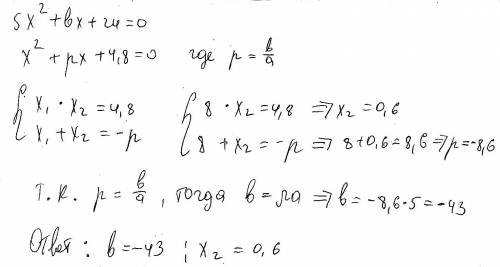 5x² + bx + 24 = 0
x² + px + 4,8 = 0 где p = b/a
{ x₁ · x₂ = 4,8 { 8 · x₂ = 4,8 ⇒ x₂ = 0,6
x₁ + x₂ = -p 8 + x₂ = -p ⇒ 8 + 0,6 = 8,6 ⇒ p = -8,6
Т.К. p = b/a, тогда b = pa ⇒ b = -8,6 · 5 = -43
Ответ: b = -43 ; x₂ = 0,6